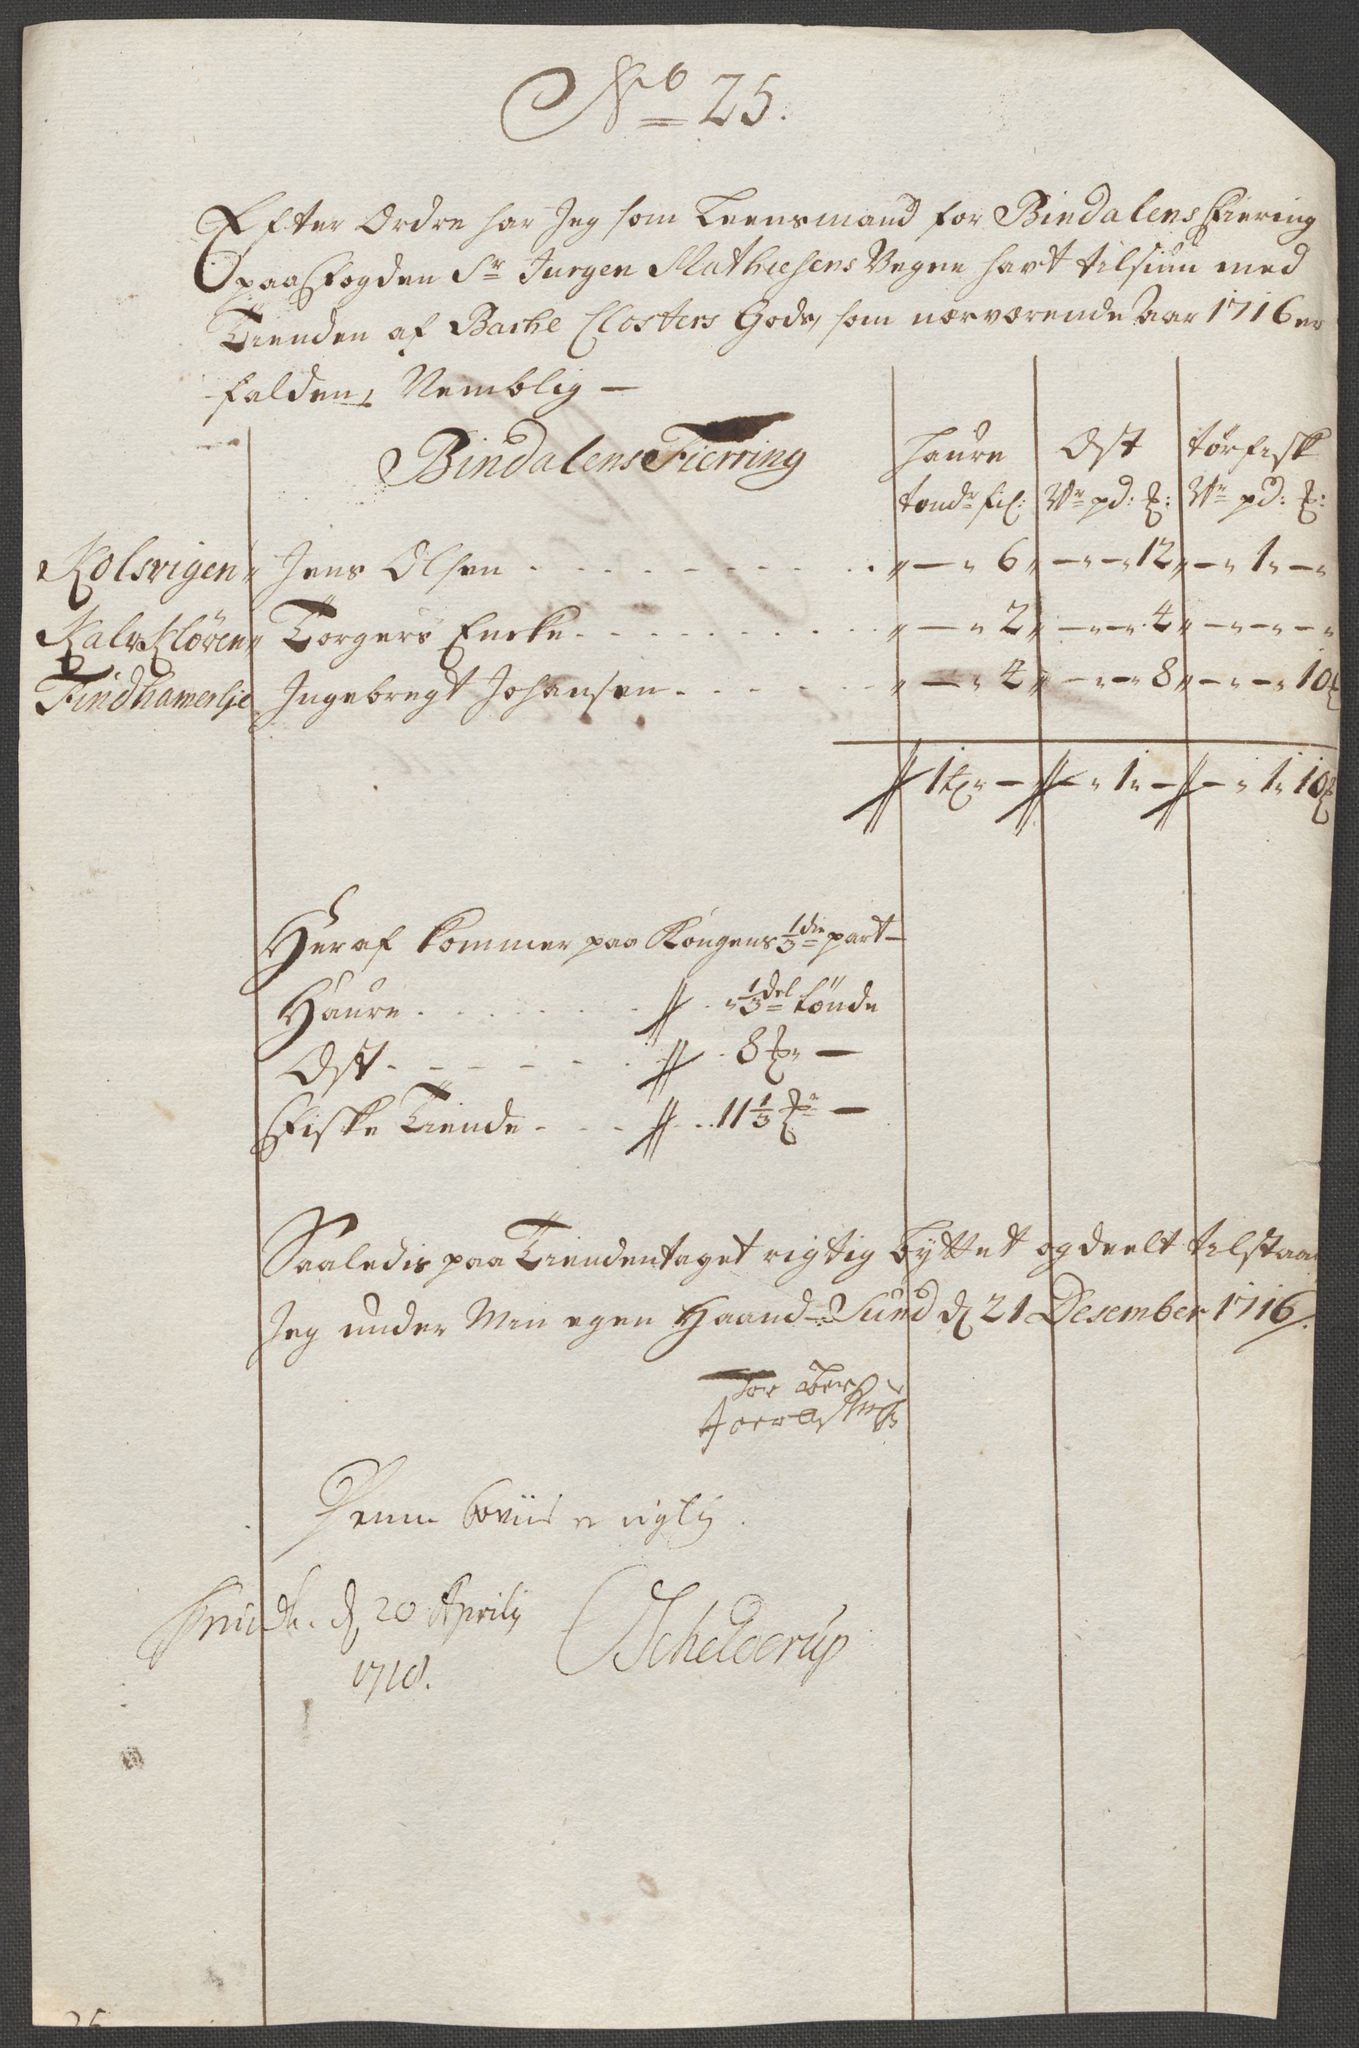 No 25.
Efter Ordre har Jeg som Leensmand for Bindalens Fiering
paa Fogden Sr Jurgen Mathiesens Vegne havt tilsiun med
Tienden af Bache Closters Gods, som nærværende Aar 1716 er
falden, Nemblig —
Bindalens Fierring
Haure Ost tørfisk
tønd: fil: W: pd: ℔: W: pd: ℔:
Kolsvigen Jens Olsen . . . . . . . . . „ — „ 6 „ — „ — „ 12 „ — „ 1 „ — „
Kalvkløven Torgers Encke . . . . . . . . „ — „ 2 „ — „ — „ 4 „ — „ — „ — „
Findhamerhje Ingebregt Johansen . . . . . „ — „ 4 „ — „ — „ 8 „ — „ — „ 10 ℔
// 1 tr „ — // — „ 1 „ — // — „ 1 „ 10 ℔
Her af kommer paa Kongens 1/3die part —
Haure . . . . . . // . „ 1/3del tønde
Ost . - - - - . // . 8 ℔ „ —
Fiske Tiende . - . // . . 11 1/3 ℔ —
Saaledis paa Tiendentaget rigtig byttet og deelt tilstaar
Jeg under Min egen Haand Sund d 21 Desember 1716/.
Denne beviis er rigtig.
d. 20 Aprily
1718.
Schelderup
25